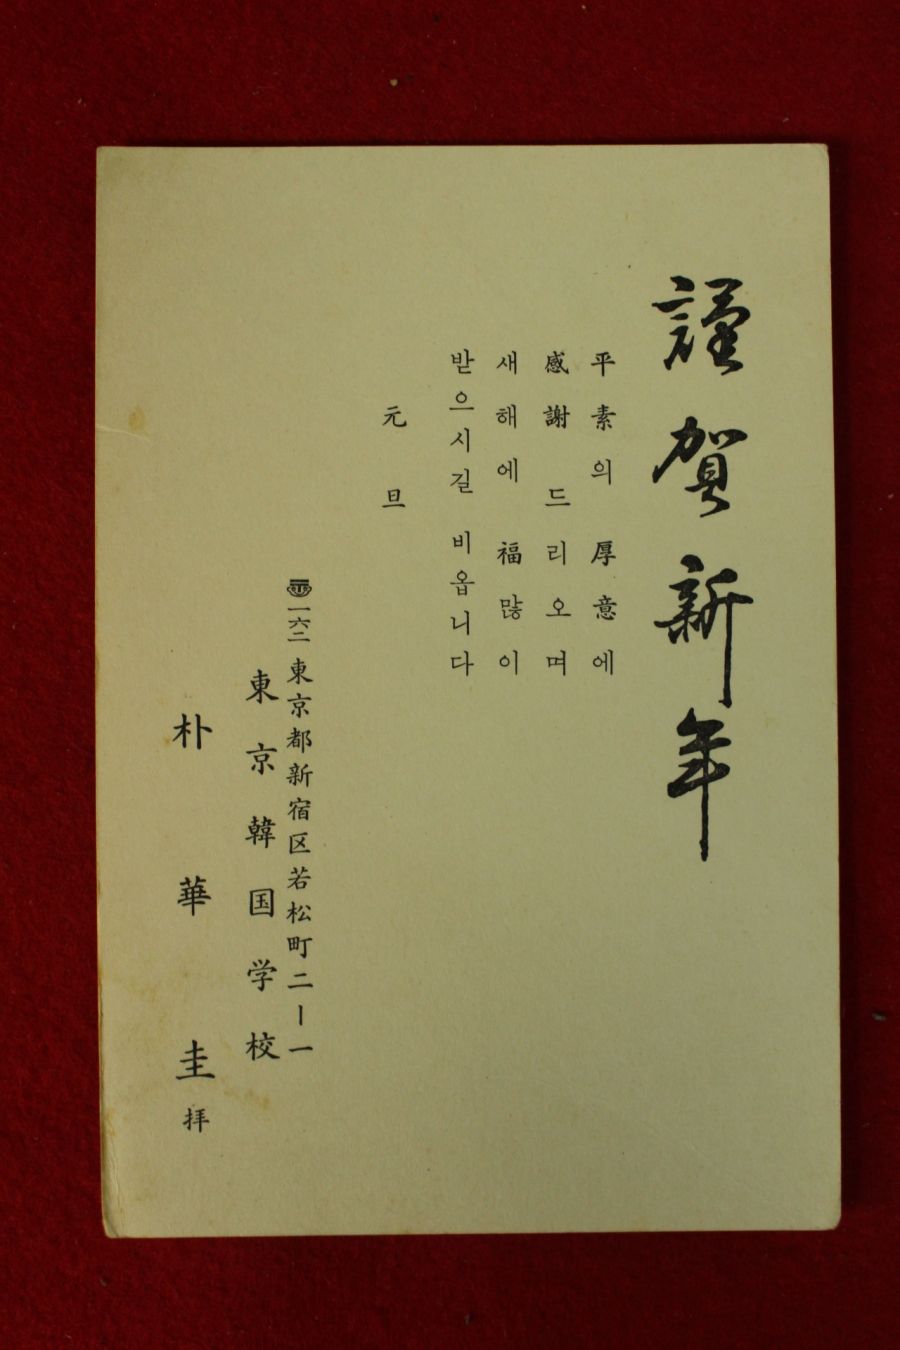 謹賀新年
平素의 厚意에
感謝 드리오며
새해에 福많이
받으시길 비옵니다
元旦
〠一六二 東京都新宿区若松町二ー一
東京韓国学校
朴華圭 拝